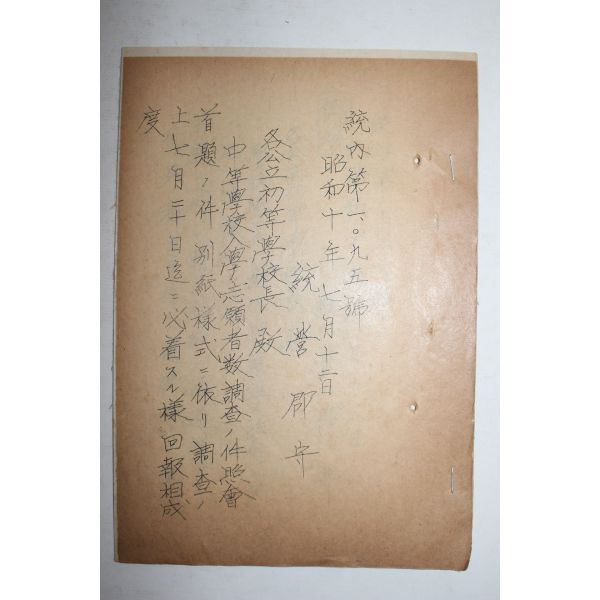 統內第一〇九五號
昭和十年七月十二日
統營郡守
各公立初等學校長殿
中等學校入學志願者数調査ノ件照會
首題ノ件別紙樣式ニ依リ調査ノ
上七月二十日迄ニ必着スル樣回報相成
度